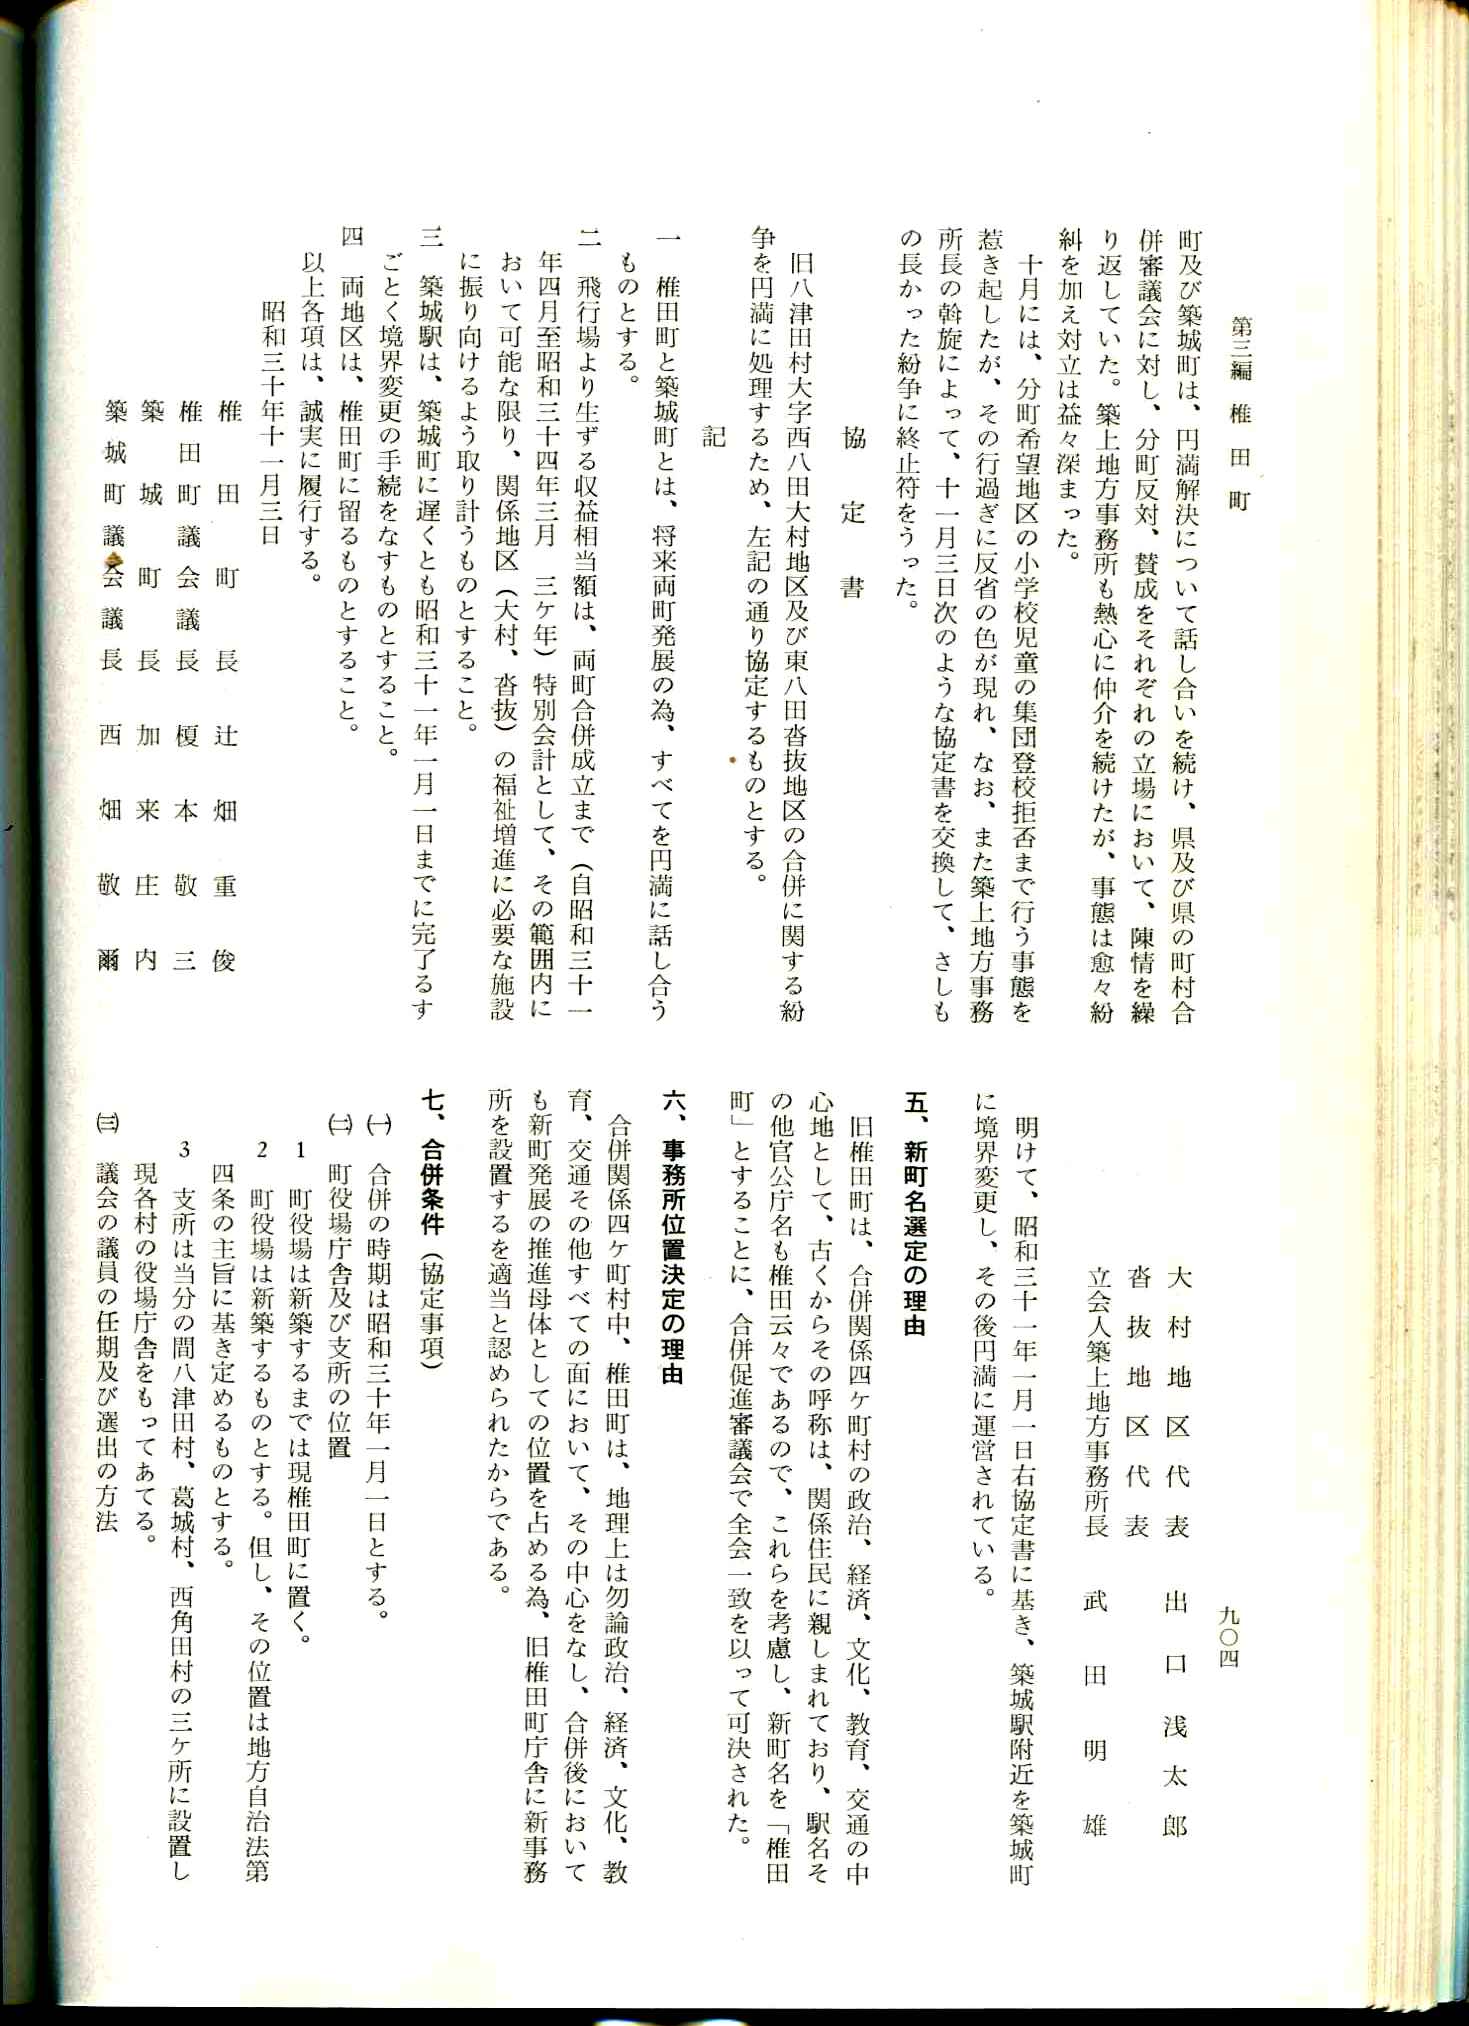 第三編 椎田町
九〇四
町及び築城町は、円満解決について話し合いを続け、県及び県の町村合
併審議会に対し、分町反対、賛成をそれぞれの立場において、陳情を繰
り返していた。築上地方事務所も熱心に仲介を続けたが、事態は愈々紛
糾を加え対立は益々深まった。
十月には、分町希望地区の小学校児童の集団登校拒否まで行う事態を
惹き起したが、その行過ぎに反省の色が現れ、なお、また築上地方事務
所長の斡旋によって、十一月三日次のような協定書を交換して、さしも
の長かった紛争に終止符をうった。
協定書
旧八津田村大字西八田大村地区及び東八田沓抜地区の合併に関する紛
争を円満に処理するため、左記の通り協定するものとする。
記
一 椎田町と築城町とは、将来両町発展の為、すべてを円満に話し合う
ものとする。
二 飛行場より生ずる収益相当額は、両町合併成立まで（自昭和三十一
年四月至昭和三十四年三月 三ケ年）特別会計として、その範囲内に
おいて可能な限り、関係地区（大村、沓抜）の福祉増進に必要な施設
に振り向けるよう取り計うものとすること。
三 築城駅は、築城町に遅くとも昭和三十一年一月一日までに完了るす
ごとく境界変更の手続をなすものとすること。
四 両地区は、椎田町に留るものとすること。
以上各項は、誠実に履行する。
昭和三十年十一月三日
椎田町長 辻畑重俊
椎田町議会議長 榎本敬三
築城町長 加来庄内
築城町議会議長 西畑敬爾
大村地区代表 出口浅太郎
沓抜地区代表
立会人築上地方事務所長 武田明雄
明けて、昭和三十一年一月一日右協定書に基き、築城駅附近を築城町
に境界変更し、その後円満に運営されている。
五、新町名選定の理由
旧椎田町は、合併関係四ケ町村の政治、経済、文化、教育、交通の中
心地として、古くからその呼称は、関係住民に親しまれており、駅名そ
の他官公庁名も椎田云々であるので、これらを考慮し、新町名を「椎田
町」とすることに、合併促進審議会で全会一致を以って可決された。
六、事務所位置決定の理由
合併関係四ケ町村中、椎田町は、地理上は勿論政治、経済、文化、教
育、交通その他すべての面において、その中心をなし、合併後において
も新町発展の推進母体としての位置を占める為、旧椎田町庁舎に新事務
所を設置するを適当と認められたからである。
七、合併条件（協定事項）
㈠ 合併の時期は昭和三十年一月一日とする。
㈡ 町役場庁舎及び支所の位置
1 町役場は新築するまでは現椎田町に置く。
2 町役場は新築するものとする。但し、その位置は地方自治法第
四条の主旨に基き定めるものとする。
3 支所は当分の間八津田村、葛城村、西角田村の三ケ所に設置し
現各村の役場庁舎をもってあてる。
㈢ 議会の議員の任期及び選出の方法